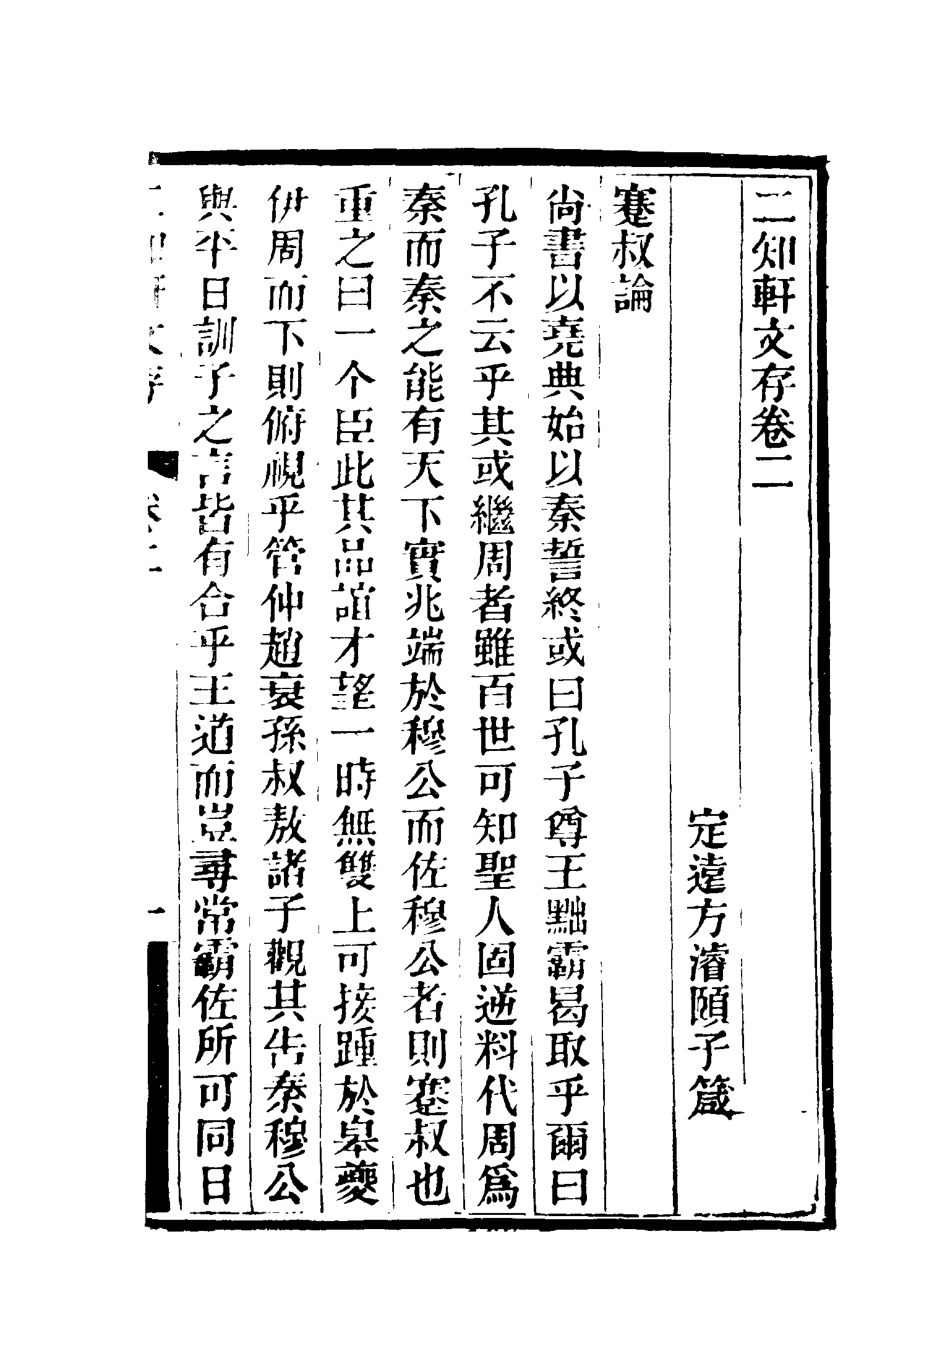 二知軒文存卷二
定遠方濬頤子箴
蹇叔論
尙書以堯典始以秦誓終或曰孔子尊王黜霸曷取乎爾曰
孔子不云乎其或繼周者雖百世可知聖人固逆料代周爲
秦而秦之能有天下實兆端於穆公而佐穆公者則蹇叔也
重之曰一个臣此其品誼才望一時無雙上可接踵於皋夔
伊周而下則俯視乎管仲趙衰孫叔敖諸子觀其告秦穆公
與平日訓子之言皆有合乎王道而豈尋常霸佐所可同日
二知軒文存 卷二 一